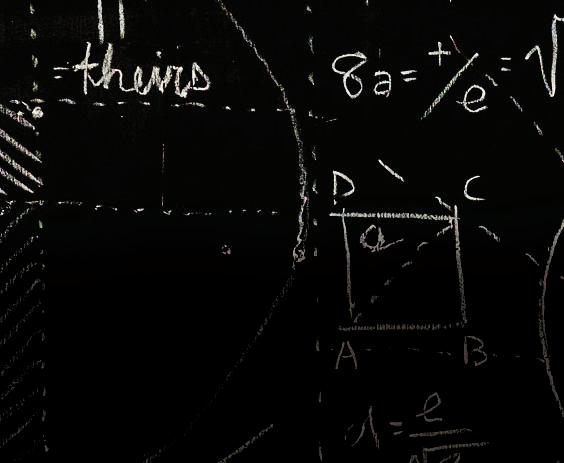 =theirs
8a= +/e = √
D C
a
A B
d = e/√